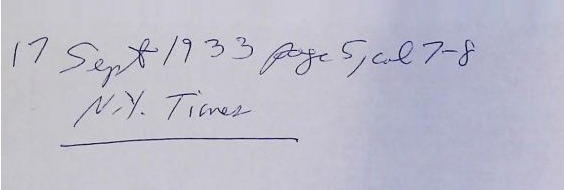 17 Sept 1933 page 5, col 7-8
N.Y. Times